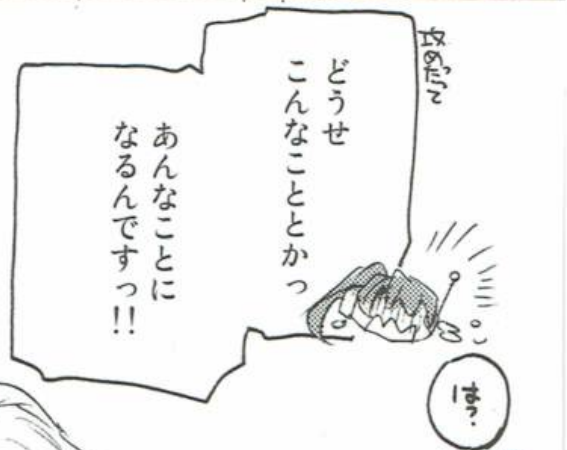 攻めたって
どうせ
こんなこととかっ
あんなことに
なるんですっ!!
は?